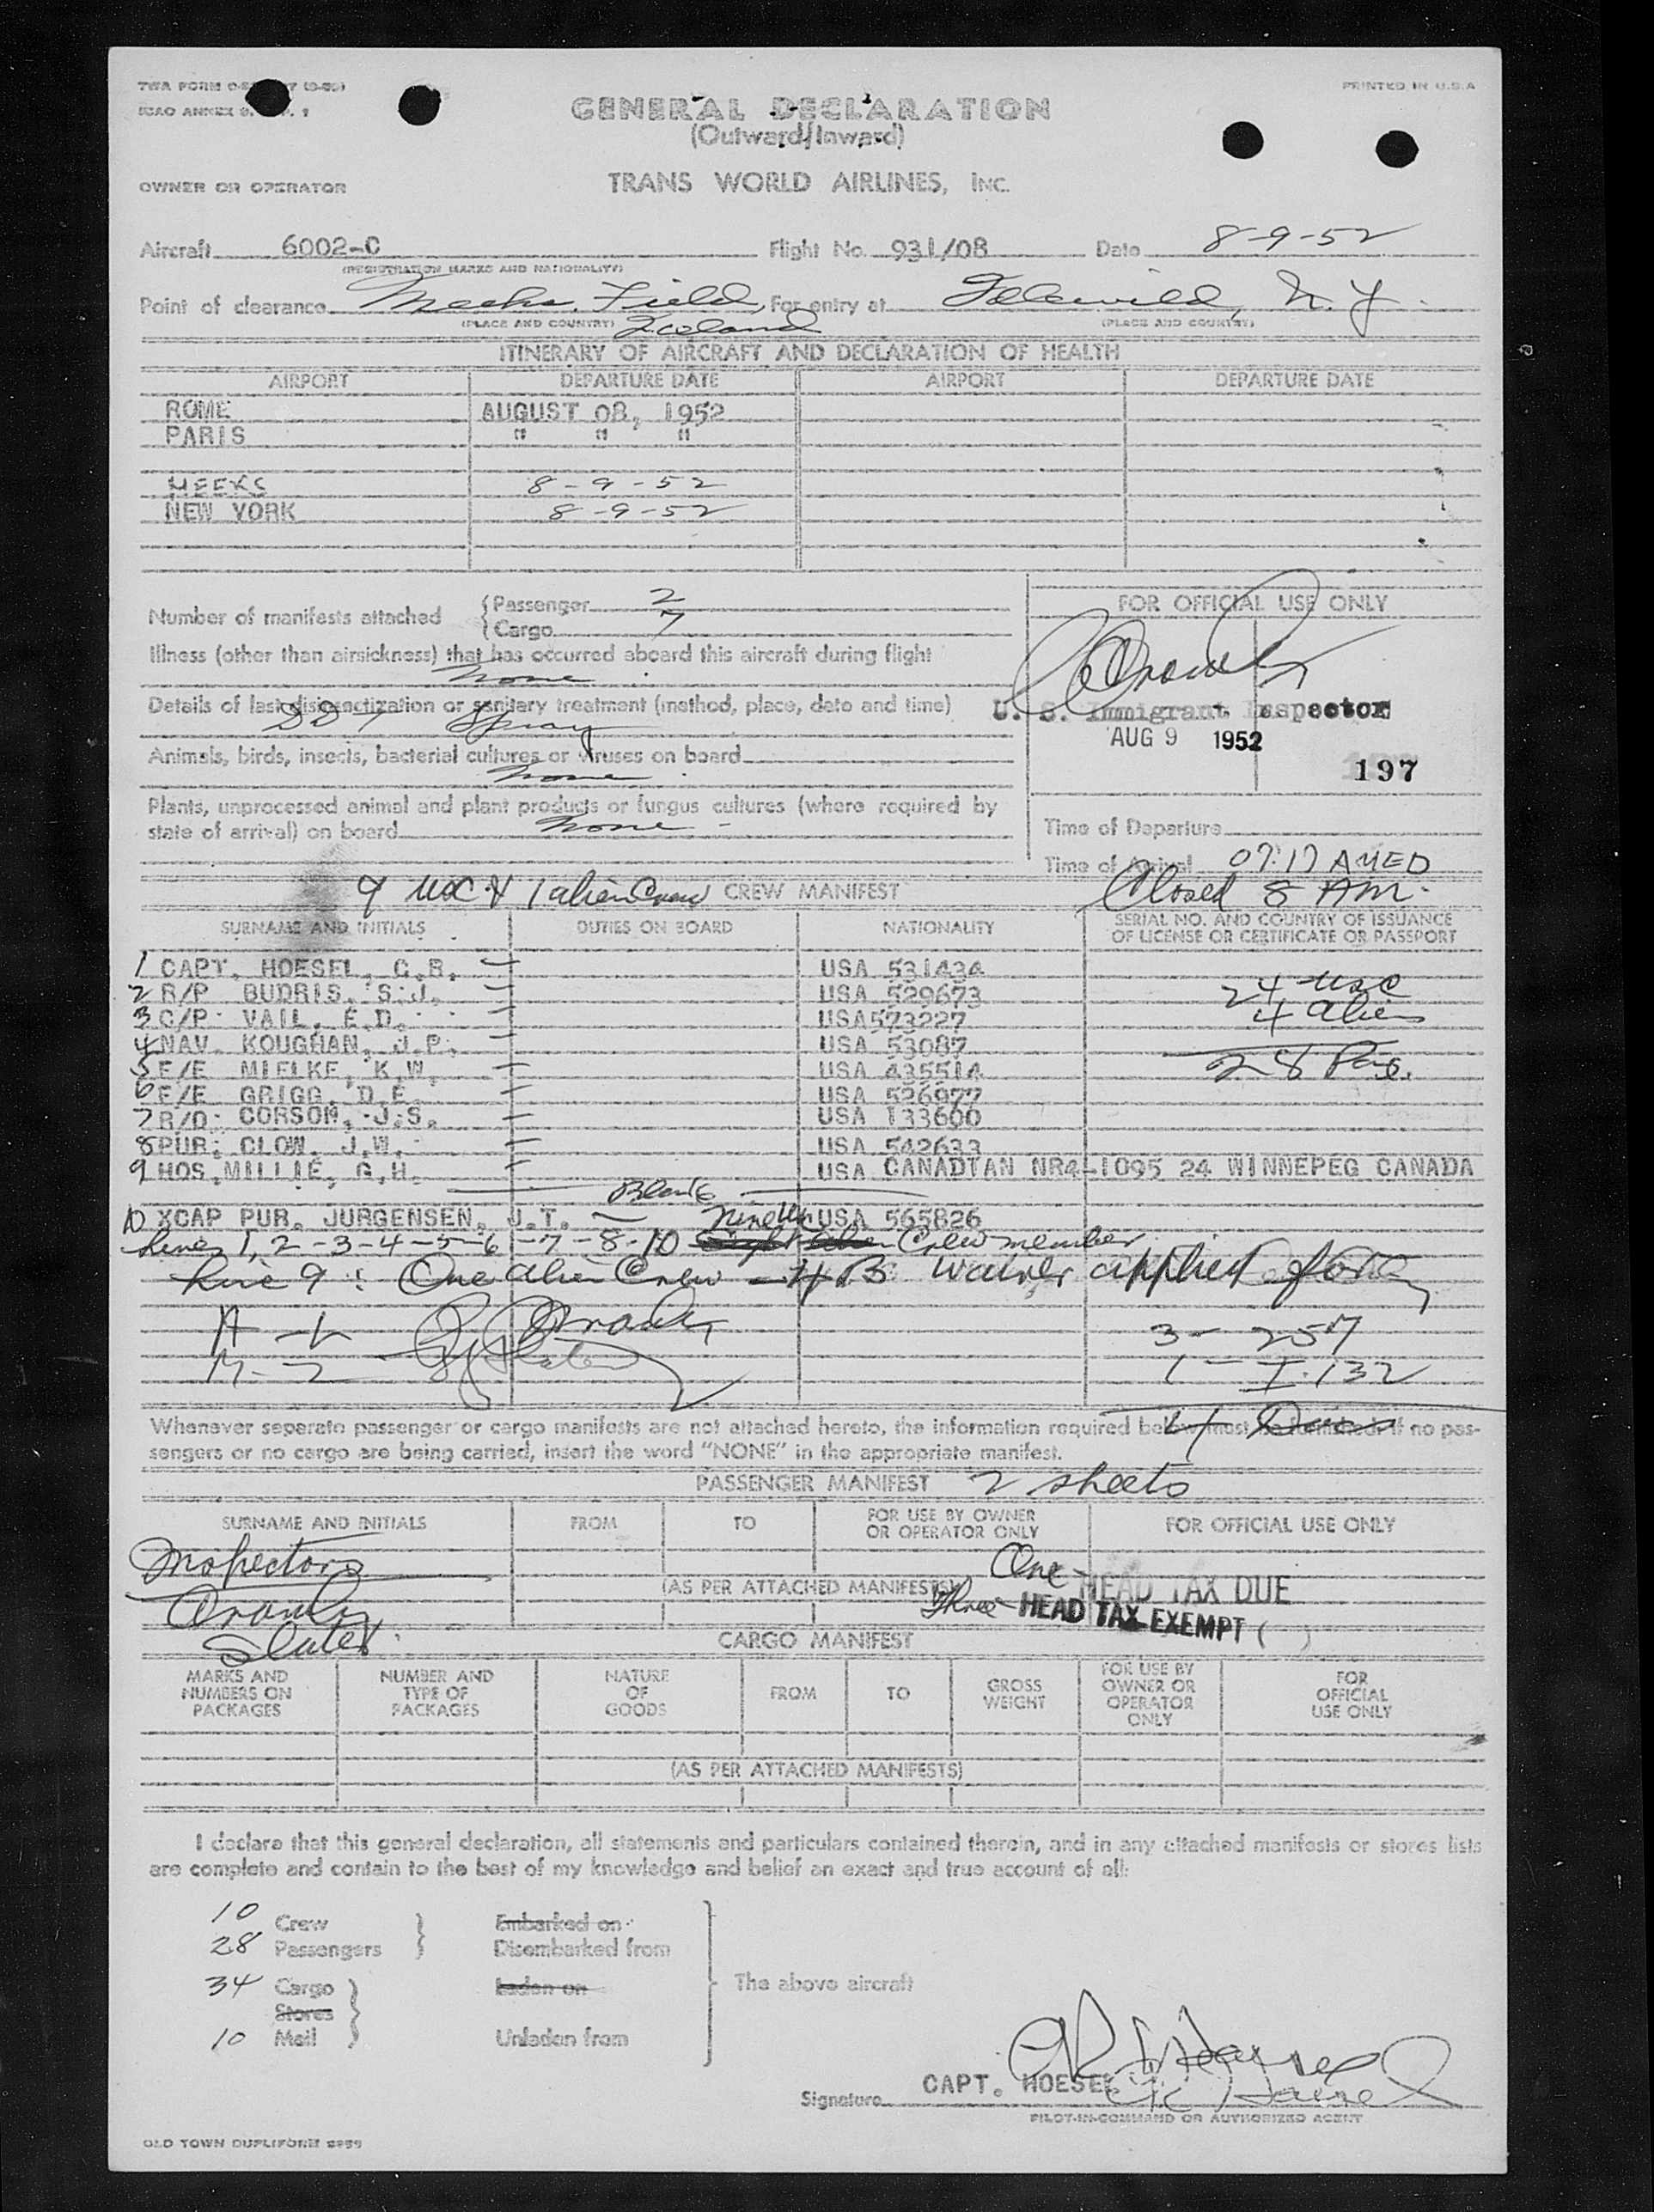 TWA FORM
PRINTED IN U.S.A
ICAO ANNEX 9,
GENERAL DECLARATION
(Outward/Inward)
OWNER OR OPERATOR TRANS WORLD AIRLINES, INC.
Aircraft 6002-C Flight No. 931/08 Date 8-9-52
(REGISTRATION MARKS AND NATIONALITY)
Point of clearance Meeks Field, For entry at Idlewild, N.Y.
(PLACE AND COUNTRY) Iceland (PLACE AND COUNTRY)
ITINERARY OF AIRCRAFT AND DECLARATION OF HEALTH
AIRPORT DEPARTURE DATE AIRPORT DEPARTURE DATE
ROME AUGUST 08, 1952
PARIS " " "
MEEKS 8-9-52
NEW YORK 8-9-52
Number of manifests attached
Passenger 2
Cargo 7
FOR OFFICIAL USE ONLY
Illness (other than airsickness) that has occurred aboard this aircraft during flight
None
Details of last disinsectization or sanitary treatment (method, place, date and time)
DDT Spray
U. S. Immigrant Inspector
AUG 9 1952
Animals, birds, insects, bacterial cultures or viruses on board
None
197
Plants, unprocessed animal and plant products or fungus cultures (where required by
state of arrival) on board None -
Time of Departure
Time of Arrival 07:17 AMED
9 USC & 1 alien Crew CREW MANIFEST Closed 8 AM.
SURNAME AND INITIALS DUTIES ON BOARD NATIONALITY SERIAL NO. AND COUNTRY OF ISSUANCE
OF LICENSE OR CERTIFICATE OR PASSPORT
1 CAPT. HOESEL, C.R. USA 531434
2 R/P BUDRIS, S.J. USA 529673 24 USC
3 C/P VAIL, E.D. USA573227 4 alien
4 NAV. KOUGHAN, J.P. USA 53087
5 E/E MIELKE, K.W. USA 435514 28 Pass.
6 E/E GRIGG, D.E. USA 526977
7 R/O CORSON, J.S. USA 133600
8 PUR. CLOW, J.W. USA 542633
9 HOS. MILLIE, G.H. USA CANADIAN NR4-1095 24 WINNEPEG CANADA
Blank
10 XCAP PUR. JURGENSEN, J.T. USA 565826
Lines 1, 2-3-4-5-6-7-8-10 Nine USC Crew member
Line 9: One alien Crew - 4 B. Waiver applied for
A - 1
3 - 257
M - 2
1 - I-132
Whenever separate passenger or cargo manifests are not attached hereto, the information required below must be furnished. If no pas-
sengers or no cargo are being carried, insert the word "NONE" in the appropriate manifest.
PASSENGER MANIFEST 2 sheets
SURNAME AND INITIALS FROM TO FOR USE BY OWNER
OR OPERATOR ONLY FOR OFFICIAL USE ONLY
Inspectors
(AS PER ATTACHED MANIFESTS) One - HEAD TAX DUE
Three - HEAD TAX EXEMPT ( )
Slater
CARGO MANIFEST
MARKS AND
NUMBERS ON
PACKAGES
NUMBER AND
TYPE OF
PACKAGES
NATURE
OF
GOODS
FROM
TO
GROSS
WEIGHT
FOR USE BY
OWNER OR
OPERATOR
ONLY
FOR
OFFICIAL
USE ONLY
(AS PER ATTACHED MANIFESTS)
I declare that this general declaration, all statements and particulars contained therein, and in any attached manifests or stores lists
are complete and contain to the best of my knowledge and belief an exact and true account of all:
10 Crew Embarked on
28 Passengers Disembarked from
34 Cargo Laden on The above aircraft
Stores
10 Mail Unladen from
Signature CAPT. HOESEL
PILOT-IN-COMMAND OR AUTHORIZED AGENT
OLD TOWN DUPLIFORM